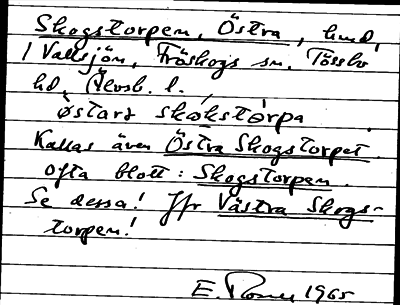 Skogstorpen, Östra, hmd,
/ Vallsjön, Fröskogs sn. Tössbo
hd, Älvsb. l.
östars skókstòrpa
Kallas även Östra Skogstorpet.
ofta blott: Skogstorpen.
Se dessa! Jfr Västra Skogs-
torpen!
E. 1965